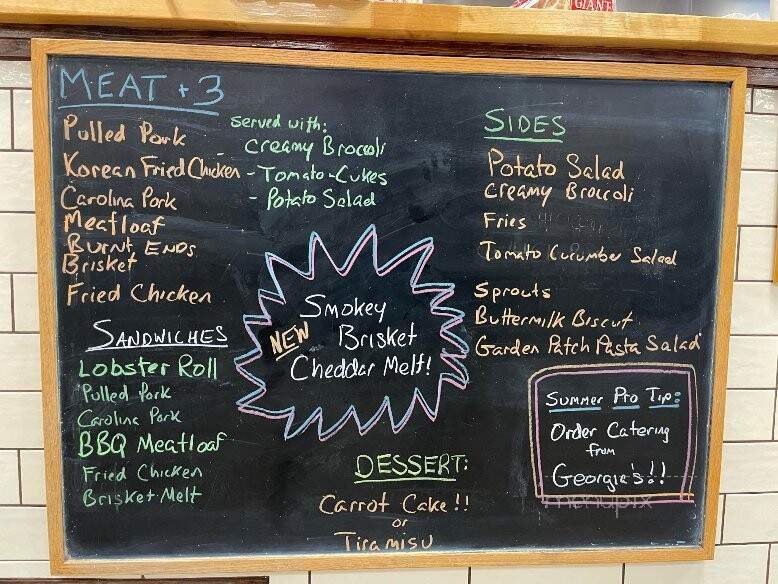 GIANT
MEAT + 3
Pulled Pork
Korean Fried Chicken
Carolina Pork
Meatloaf
Burnt Ends
Brisket
Fried Chicken
served with:
- Creamy Broccoli
- Tomato-Cukes
- Potato Salad
SIDES
Potato Salad
Creamy Broccoli
Fries
Tomato Cucumber Salad
Sprouts
Buttermilk Biscut
Garden Patch Pasta Salad
NEW
Smokey
Brisket
Cheddar Melt!
SANDWICHES
Lobster Roll
Pulled Pork
Carolina Pork
BBQ Meatloaf
Fried Chicken
Brisket Melt
DESSERT:
Carrot Cake!!
or
Tiramisu
Summer Pro Tip:
Order Catering
from
Georgia's!!
menupix